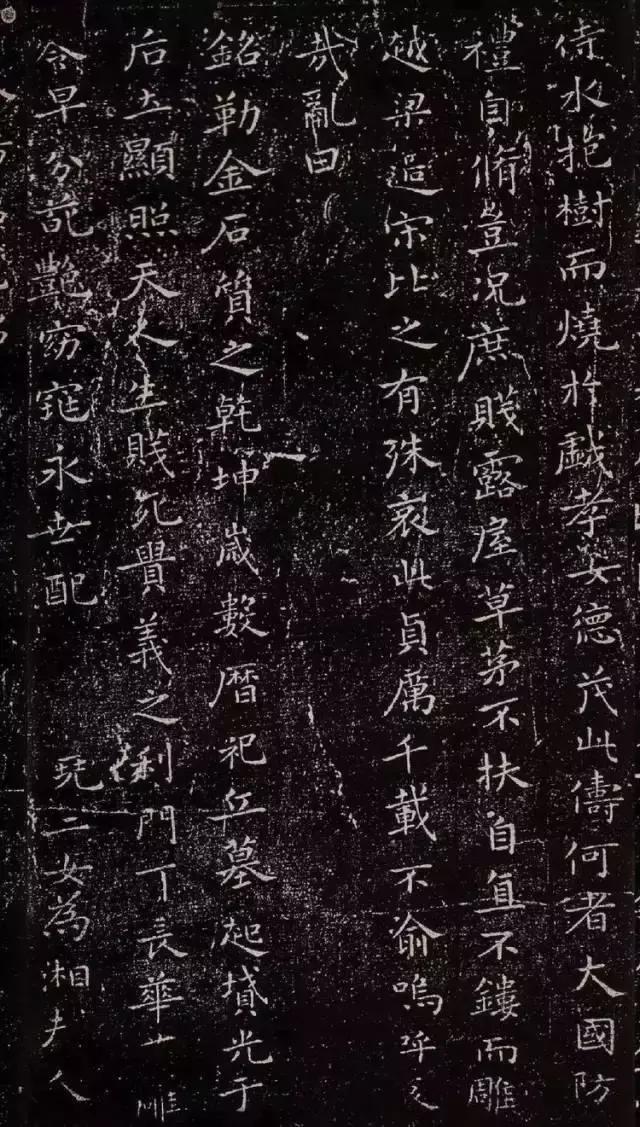 侍水抱樹而燒於戲孝女德茂此儔何者大國防
禮自脩豈况庶賤露屋草茅不扶自直不鏤而雕
越梁過宋比之有殊哀此貞厲千載不渝嗚呼
哉亂曰
銘勒金石質之乾坤歲數曆祀丘墓起墳光于
后土顯照天人生賤死貴義之利門華雕
令早分葩艷窈窕永世配堯二女為湘夫人